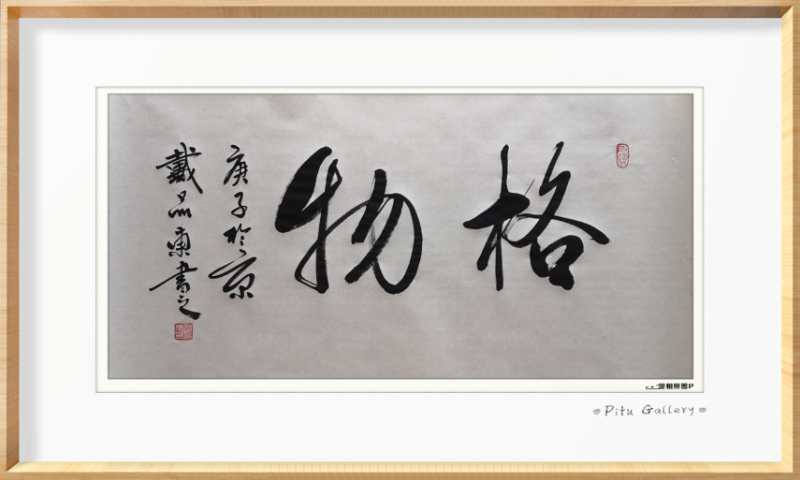 格物
庚子於京
戴品書之
Pitu Gallery